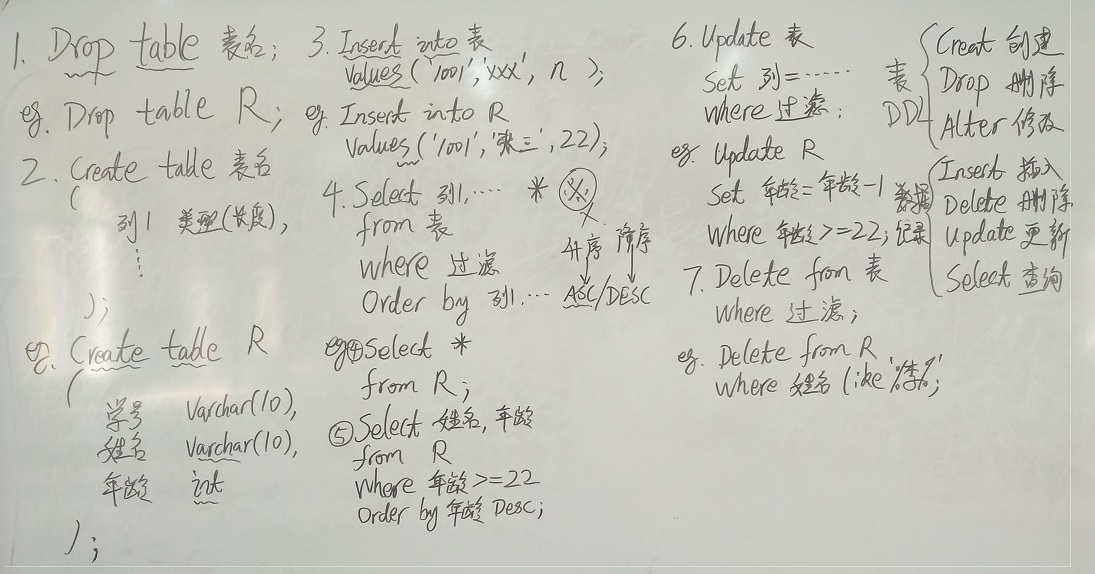 1. Drop table 表名;
eg. Drop table R;
2. Create table 表名
(
列1 类型(长度),
⋮
);
eg. Create table R
(
学号 Varchar(10),
姓名 Varchar(10),
年龄 int
);
3. Insert into 表
Values('1001','xxx', n );
eg. Insert into R
Values('1001','张三',22);
4. Select 列1,…… *
from 表
where 过滤
升序 降序
Order by 列1,… ASC/DESC
eg④Select *
from R;
⑤Select 姓名,年龄
from R
where 年龄>=22
Order by 年龄 Desc;
6. Update 表
Set 列=……
where 过滤;
eg. Update R
Set 年龄=年龄-1
Where 年龄>=22;
7. Delete from 表
where 过滤;
eg. Delete from R
where 姓名 like '%李%';
表
DDL
Creat 创建
Drop 删除
Alter 修改
数据
记录
Insert 插入
Delete 删除
Update 更新
Select 查询